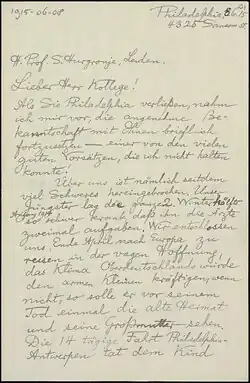 1915-06-08
Philadelphia, 8/6/15
4325 Sansom St.
H. Prof. S. Hurgronje, Leiden.
Lieber Herr Kollege!
Als Sie Philadelphia verließen, nahm
ich mir vor, die angenehme Be-
kanntschaft mit Ihnen brieflich
fortzusetzen – einer von den vielen
guten Vorsätzen, die ich nicht halten
konnte!
Über uns ist nämlich seitdem
viel Schweres hereingebrochen. Unser
Jüngster lag die ganze 2. Winterhälfte
Anfang 1914
so schwer krank, daß ihn die Ärzte
zweimal aufgaben. Wir entschlossen
uns Ende April nach Europa zu
reisen in der vagen Hoffnung,
das Klima Oberdeutschlands würde
den armen Kleinen kräftigen; wenn
nicht, so solle er vor seinem
Tod einmal die alte Heimat
und seine Großmutter sehen.
Die 14 tägige Fahrt Philadelphia-
Antwerpen tat dem Kind